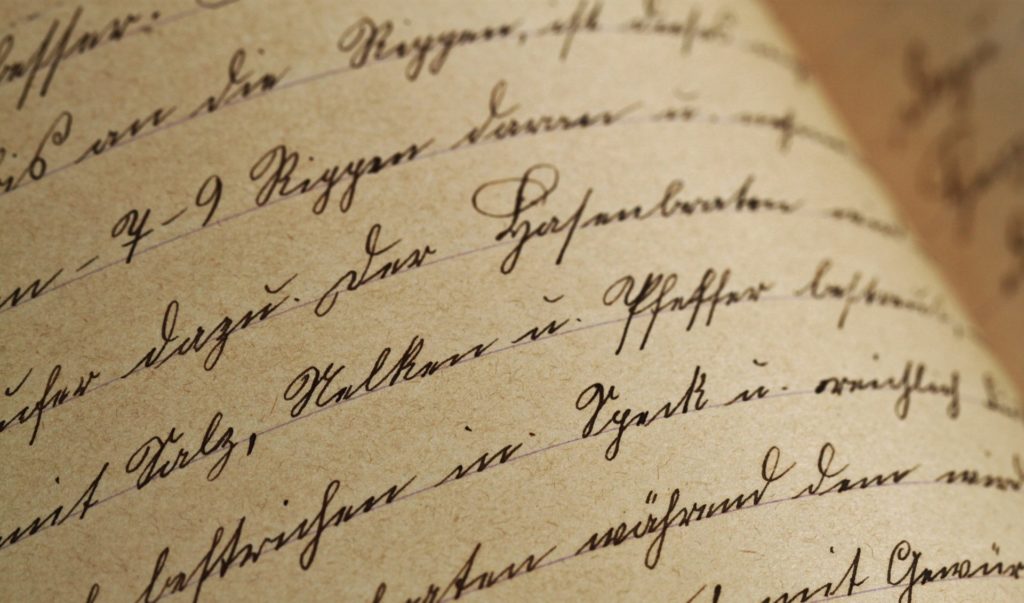 besser.
bis an die Rippen, ist dieses
7-9 Rippen daran u.
dazu. Der Hasenbraten
mit Salz, Nelken u. Pfeffer bestreut
bestrichen in Speck u. reichlich
braten während dem wird
mit Gewür